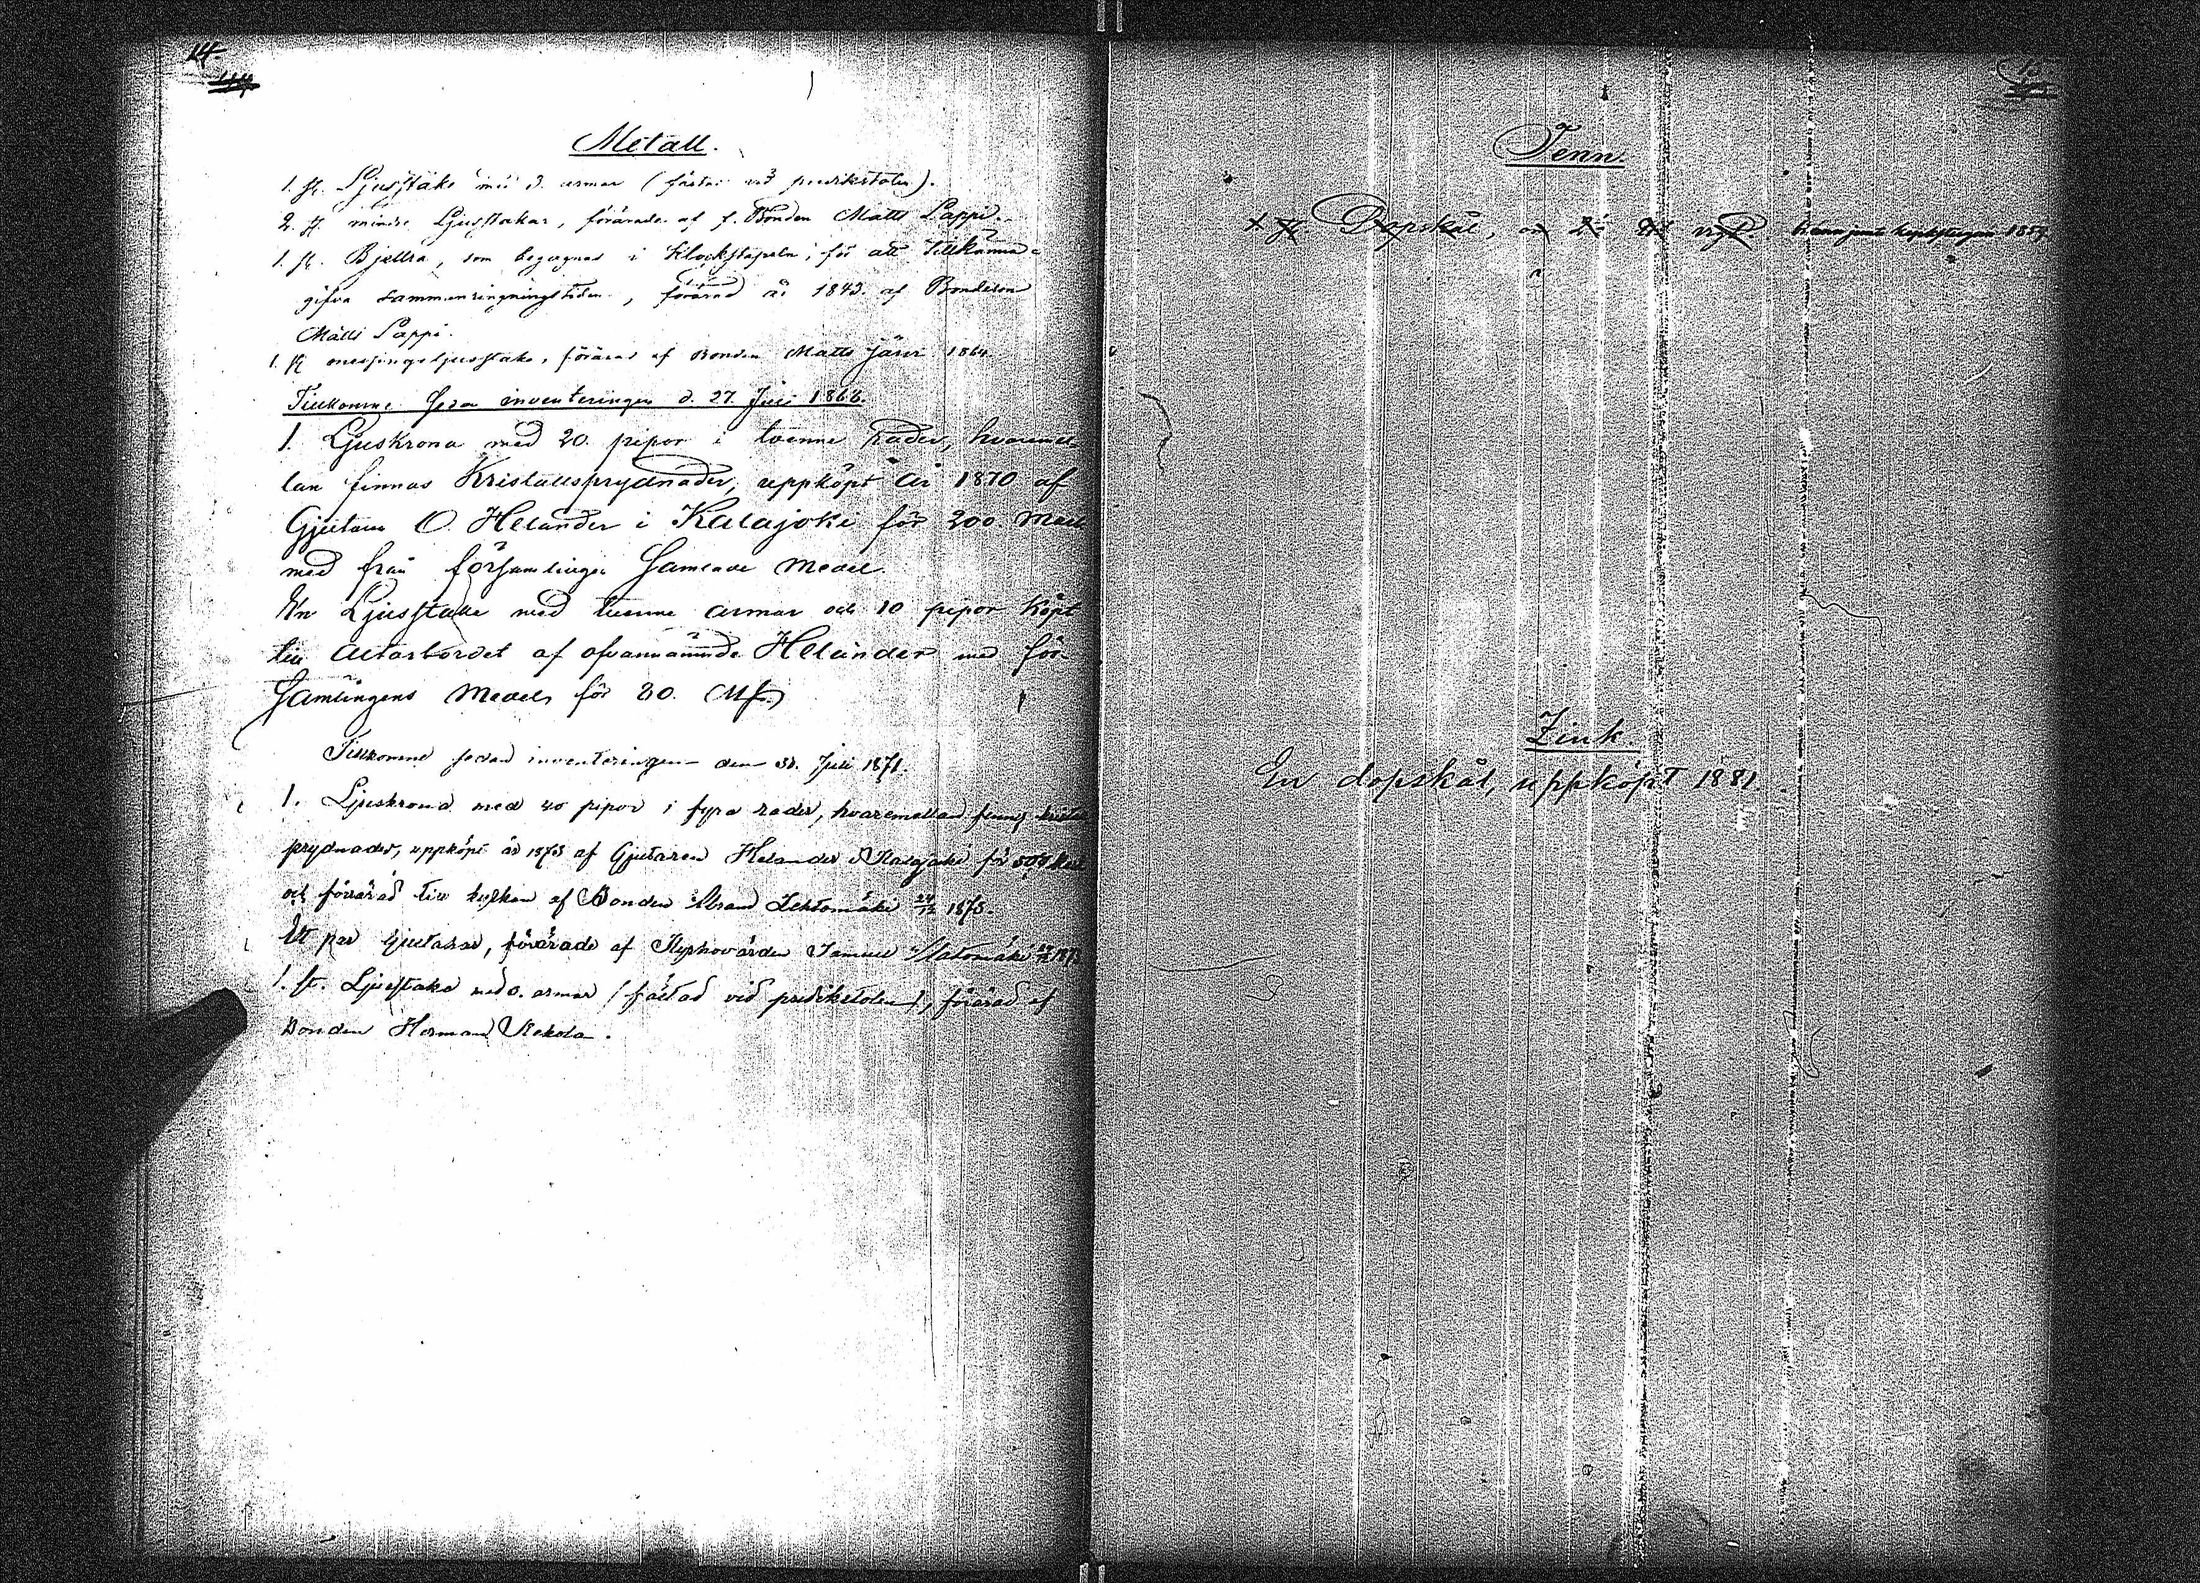 14.
Metall.
1. st. Ljusstake med 3. armar (fästad vid predikstolen).
2. st. mindre Ljusstakar, förärade af f. Bonden Matts Lappi.
1. st. Bjellra, som begagnas i Klockstapeln, för att tillkänna-
gifva sammanringningstiden, förärad år 1843. af Bondeson
Matts Lappi.
1. st messingsljusstake, förärad af Bonden Matts 1864.
Tillkomne sedan inventeringen d. 27. Juli 1866.
1. Ljuskrona med 20. pipor i tvenne rader, hvaremel-
lan finnas Kristallsprydnader, uppköpt år 1870 af
Gjutaren O. Helander i Kalajoki för 200. Mark
med från församlingen samlade medel.
En Ljusstake med tvenne armar och 10 pipor köpt
till Altarbordet af ofvannämnde Helander med för-
samlingens medel för 80. Mk.
Tillkomne sedan inventeringen den 31. Juli 1871.
1. Ljuskrona med 40 pipor i fyra rader, hvaremellan finnas
prydnader, uppköpt år 1873 af Gjutaren Helander i Kalajoki för 500
och förärad till kyrkan af Bonden Abram Lehtomäki 24/12 1873.
Ett par ljustakar, förärade af Kyrkovärden Samuel
1. st. Ljusstake med armar (fästad vid predikstolen), förärad af
Bonden Herman Rekola.
15
Tenn.
1 st. Dopskål,
Zink.
En dopskål, uppköpt 1881.